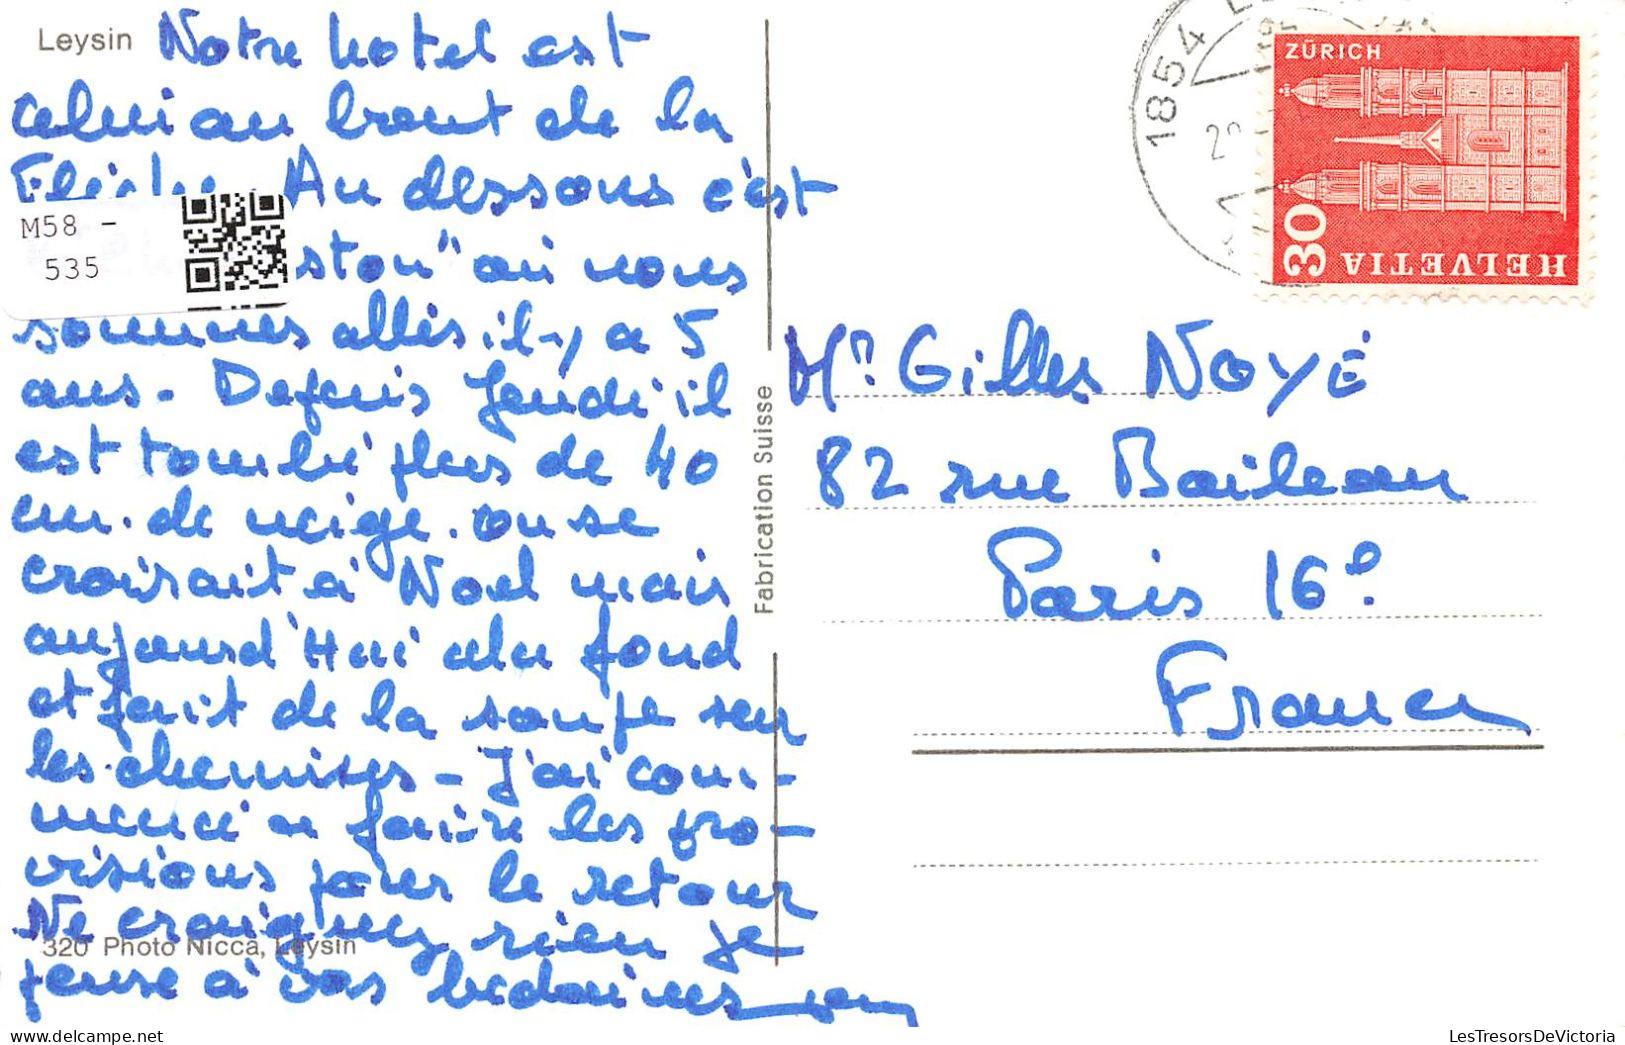 Leysin
Notre hotel est
celui au bout de la
Flèche. Au dessous c'est
ston" où nous
sommes allés il y a 5
ans - Depuis Jeudi il
est tombé plus de 40
cm. de neige. on se
croirait à Noël mais
aujourd'Hui cela fond
et fait de la soupe sur
les chemises - J'ai com-
mencé a faire les pro-
visions pour le retour
Ne craignez rien je
pense à vos bedaines
320 Photo Nicca, Leysin
M58 -
535
Fabrication Suisse
1854
ZÜRICH
30
HELVETIA
Mr. Gilles NOYÉ
82 rue Boileau
Paris 16e.
France
LesTresorsDeVictoria